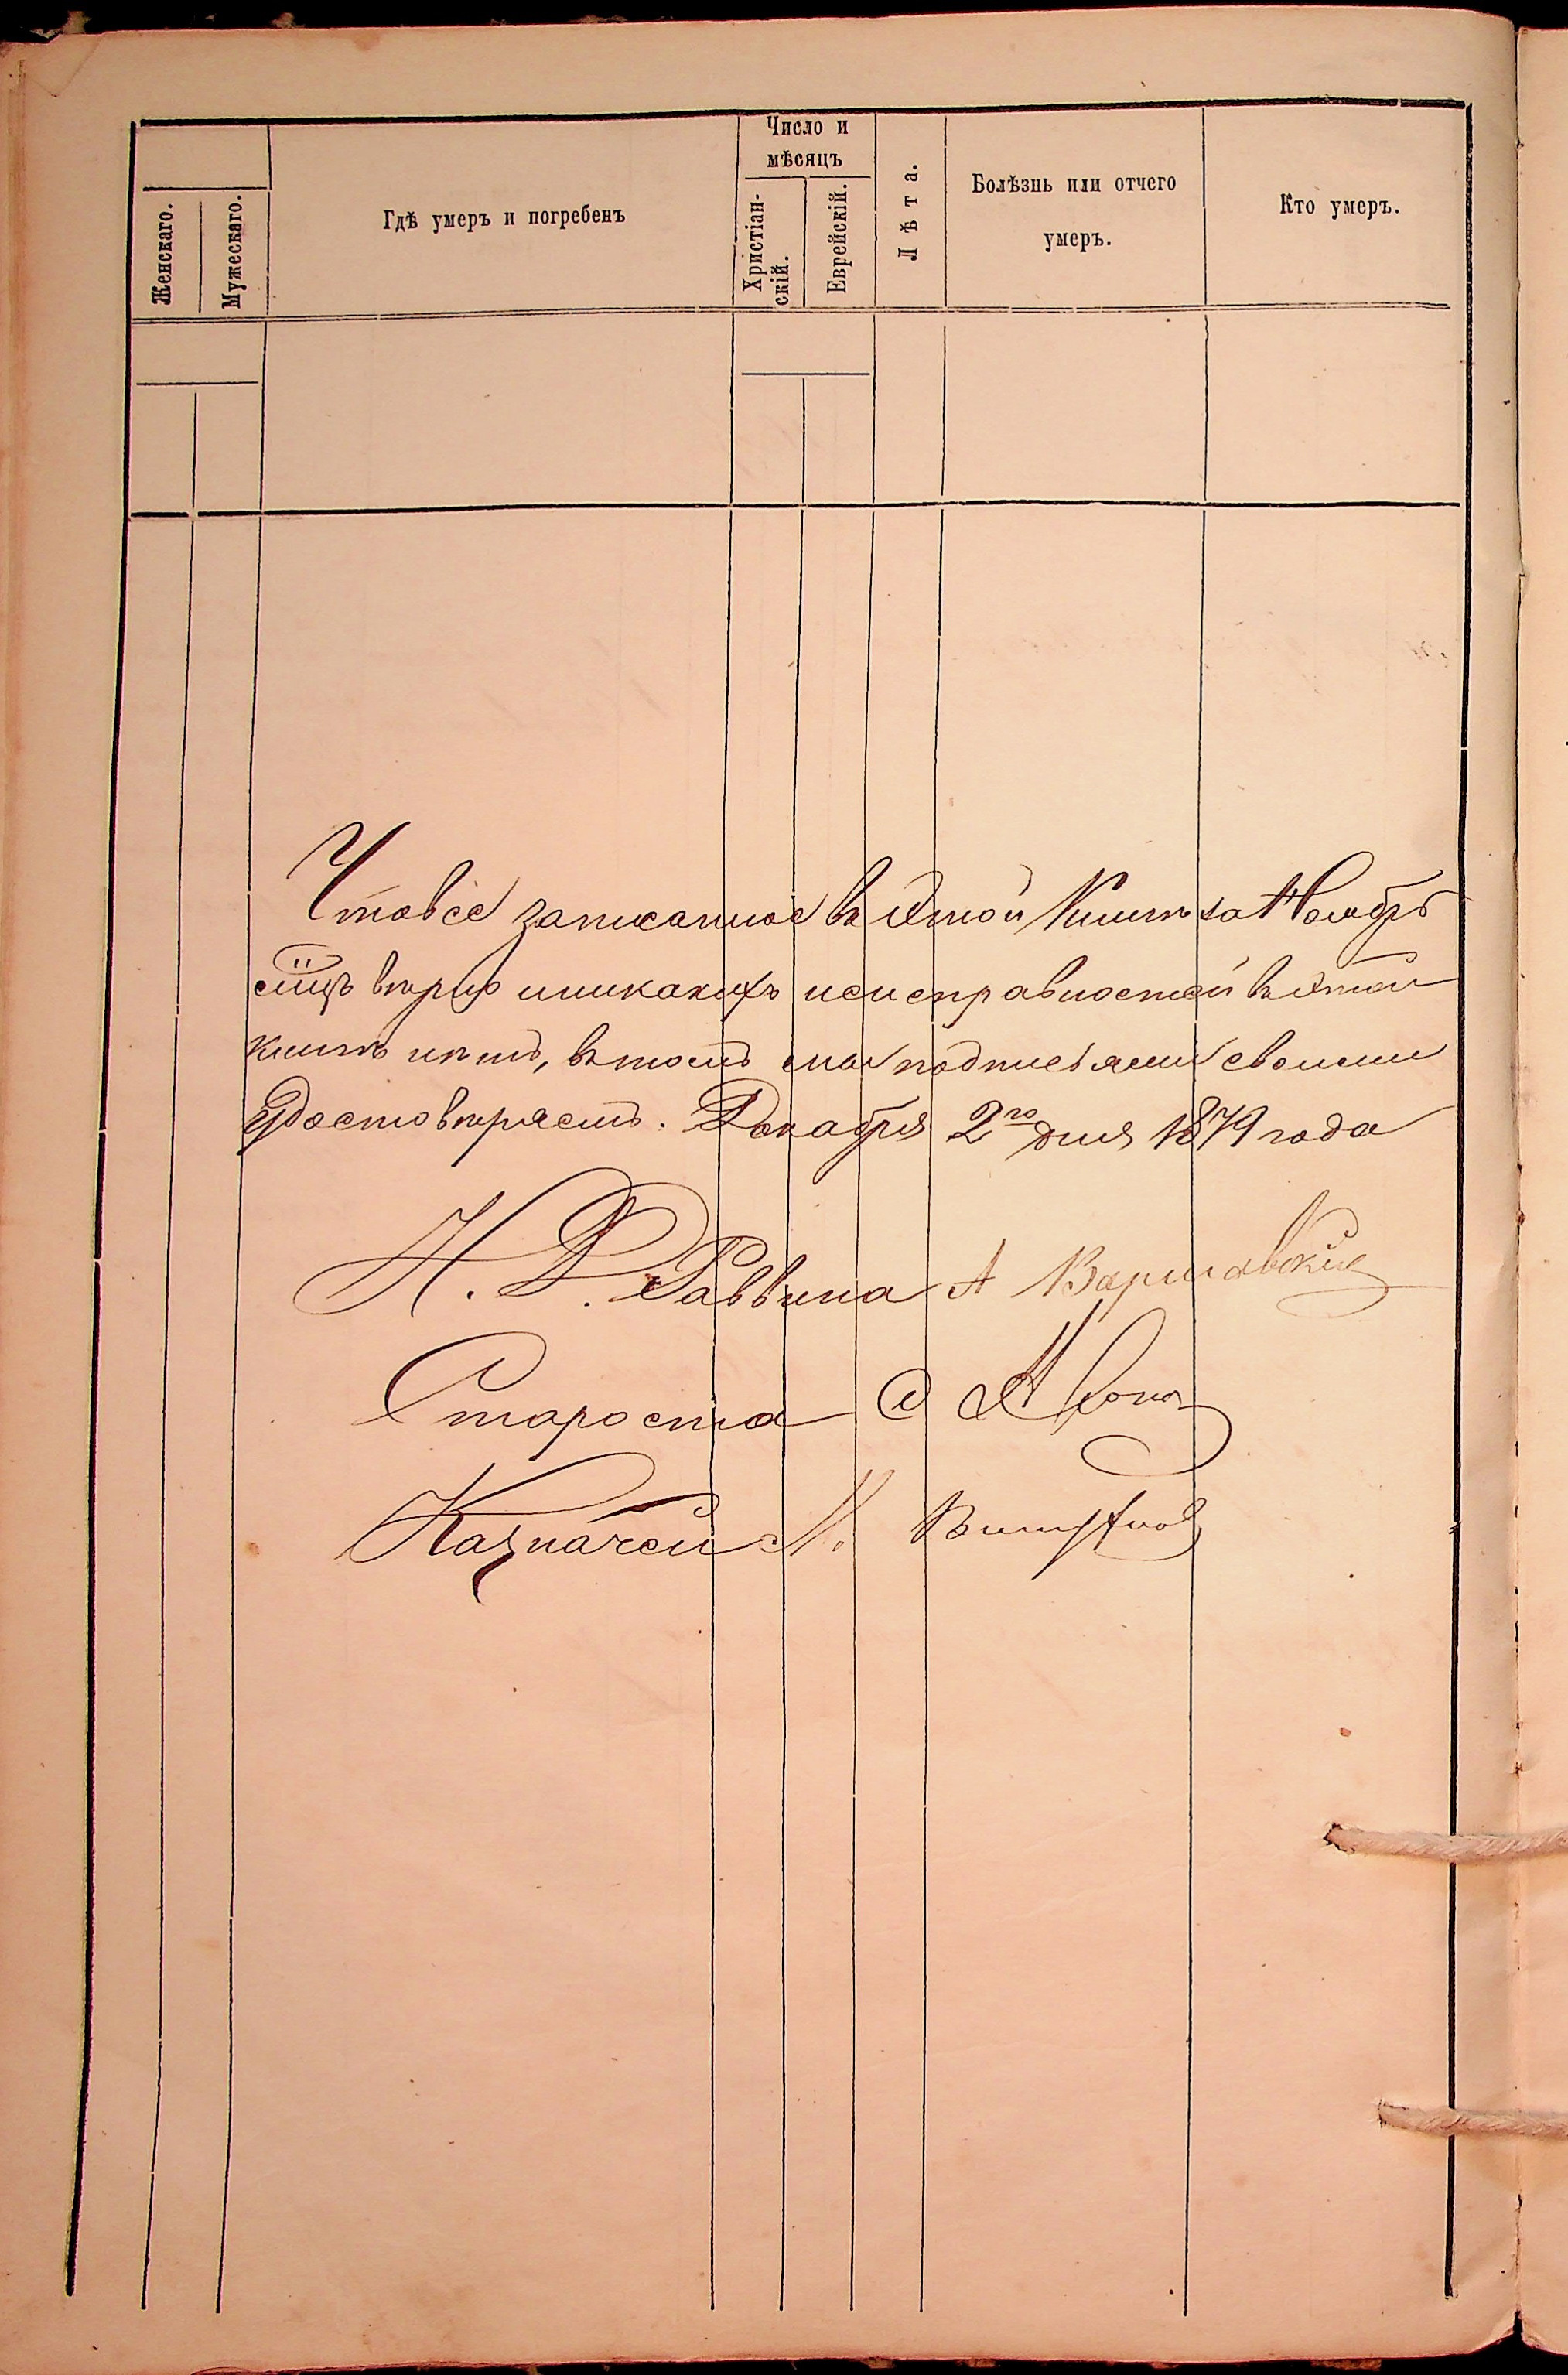 Женскаго.
Мужескаго.
Гдѣ умеръ и погребенъ
Число и
мѣсяцъ
Христіан-
скій.
Еврейскій.
Лѣта.
Болѣзнь или отчего
умеръ.
Кто умеръ.
Что всё записанное въ этой Книгѣ за Ноябрь
мцъ вѣрно и никакихъ неисправностей въ этой
книгѣ нѣтъ, въ томъ мы подписями своими
удостовѣряемъ. Декабря 2го дня 1879 года
И. Д. Раввина А Варшавскій
Староста
Казначей М.